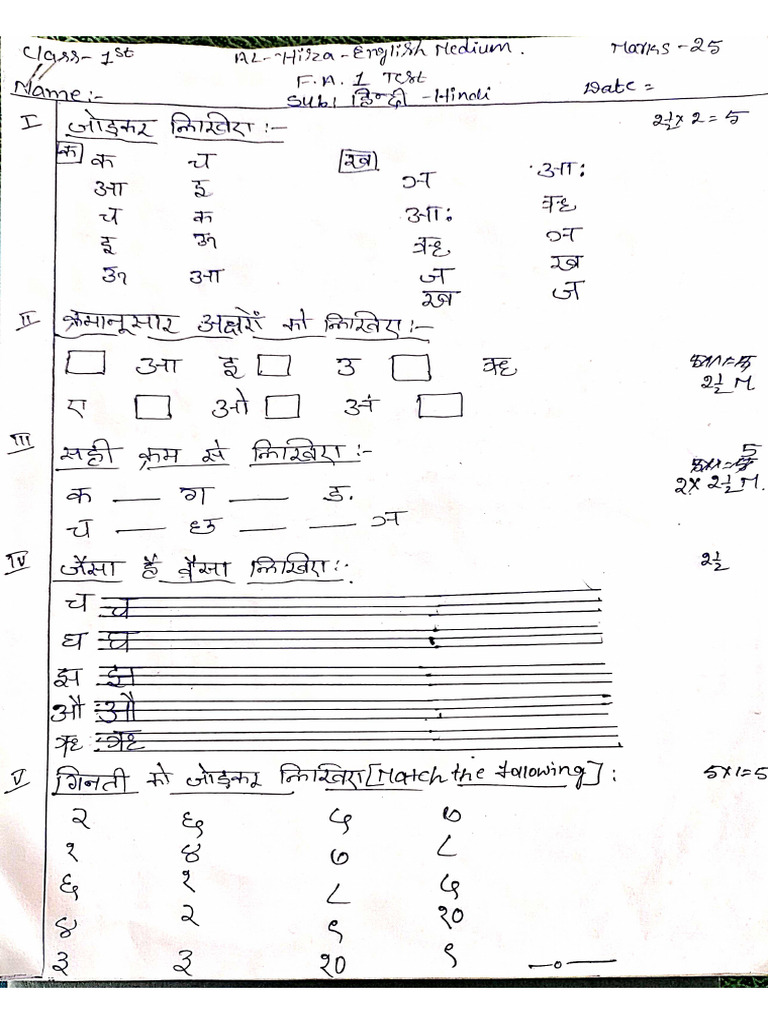 Class- 1st AL-Hisza-English Medium. Marks-25
F.A. 1 Test
Name:- Sub: हिन्दी -Hindi Date=
I जोड़कर लिखिए:- 2½×2=5
क ख
क च ञ आः
आ इ आः ऋ
च क ऋ ञ
इ ऊ ज ख
ऊ आ ख ज
II क्रमानूसार अक्षरों को लिखिए:-
□ आ इ □ उ □ ऋ 2½ M
ए □ ओ □ अं □
III सही क्रम से लिखिए:- 5
क — ग — ङ. 2×2½M.
च — छ — — ञ
IV जैसा है वैसा लिखिए:- 2½
च च
घ घ
झ झ
औ औ
ऋ ऋ
V गिनती को जोड़कर लिखिए[Match the falowing]: 5×1=5
२ ६ ५ ७
१ ४ ७ ८
६ १ ८ ५
४ २ ९ १०
३ ३ १० ९